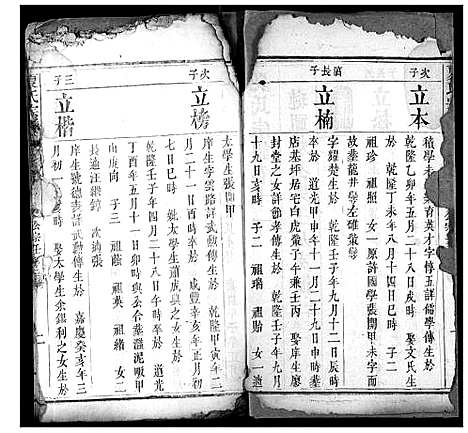 次子
立本
積學未 育英才字 五詳儒學傳生於
乾隆乙卯年五月二十八日戌時 娶文氏生
於 乾隆丁未年八月十四日巳時 子二
祖珍 祖照 女一原許國學張開甲未字而
故葬龍井學左
嫡長子
立楠
字耀楚生於 乾隆壬子年九月十二日辰時
卒於 道光甲申年十一月二十九日申時葬
店基坪居宅白虎 子午兼壬丙 娶庠生廖
封堂之女詳節孝傳生於 乾隆壬子年九月
十九日亥時 子二 祖瑞 祖貽 女一適
太學生張開甲
次子
立榜
庠生字雲路詳武勳傳生於 甲寅年二
月二十一日酉時卒於 咸豐辛亥年正月初
七日巳時 娶太學生蕭 與之女生於
乾隆壬子年四月二十八日午時 道光
丁酉年五月十一日卯時與公合葬 泥吸甲
山庚向 子三 祖蔭 祖英 祖
長適汪 次適張
三子
立楷
庠生號德 武勳傳生於 嘉慶癸亥年三
月初一 亥時 娶太學生余錫利之女生於